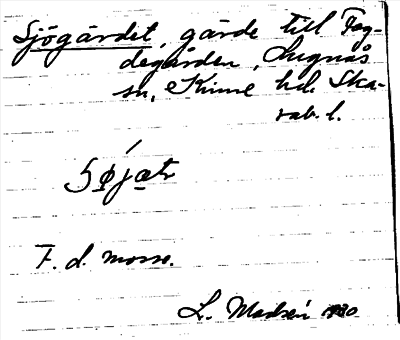 Sjögärdet, gärde till Fog-
degården, Lugnås
sn, Kinne hd. Ska-
rab. l.
F. d. mosse.
L. Madsén 1930